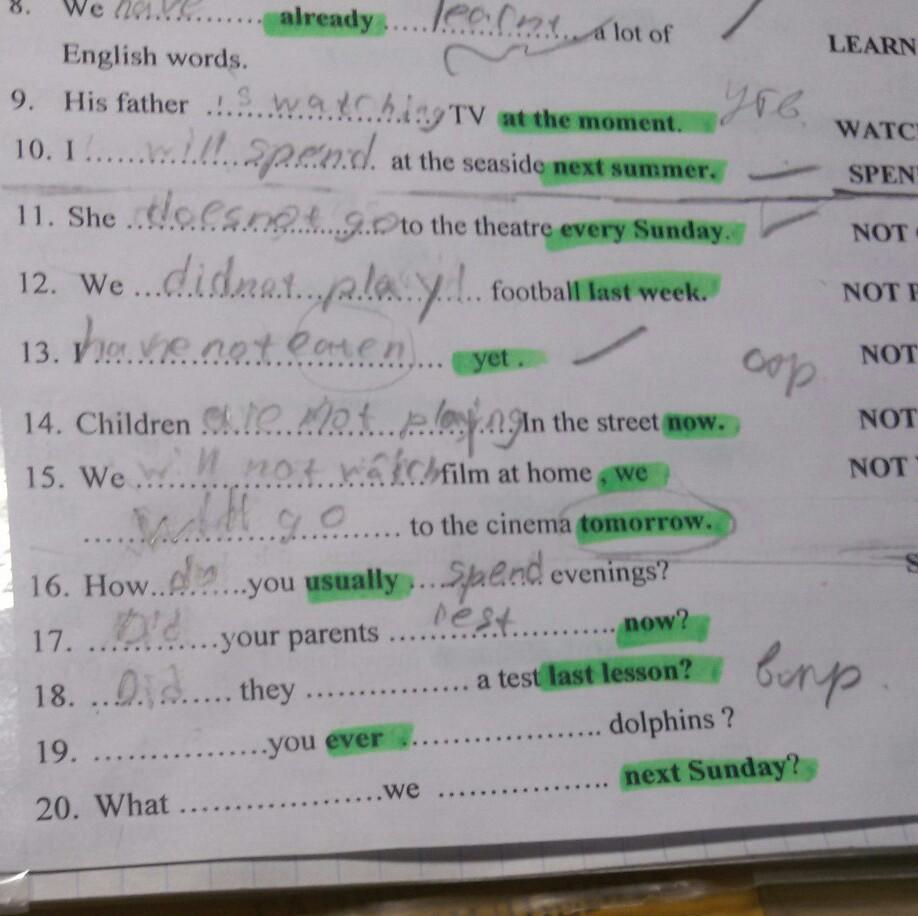 8. We have already learnt a lot of LEARN
English words.
9. His father is watching TV at the moment. WATC
10. I will spend at the seaside next summer. SPEN
11. She does not go to the theatre every Sunday. NOT
12. We did not play football last week. NOT
13. I have not eaten yet. NOT
14. Children are not playing In the street now. NOT
15. We will not watch film at home, we NOT
will go to the cinema tomorrow.
16. How do you usually spend evenings? S
17. Did your parents rest now?
18. Did they a test last lesson?
19. you ever dolphins ?
20. What we next Sunday?